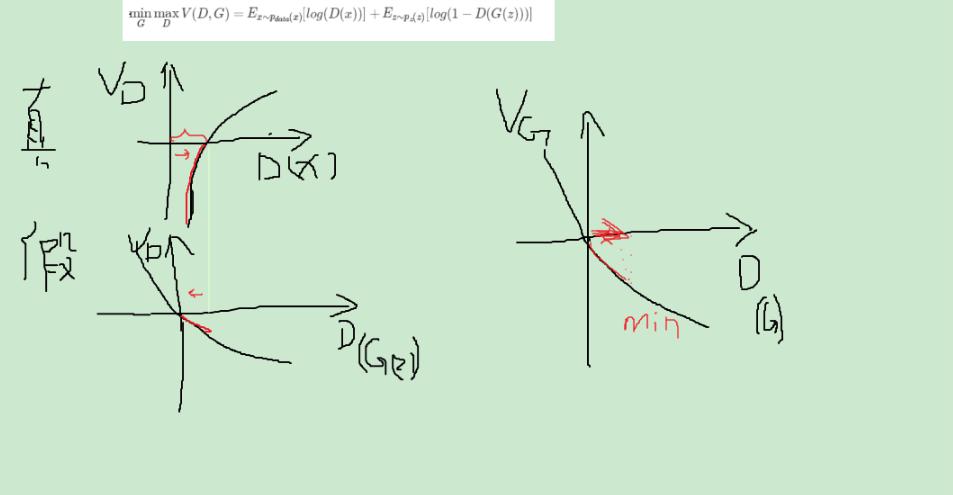 min max V(D,G) = E_{x∼p_{data}(x)}[log(D(x))] + E_{z∼p_z(z)}[log(1 − D(G(z)))]
G D
V_D
真
D(x)
假
V_D
D(G(z))
V_G
D
(G)
min